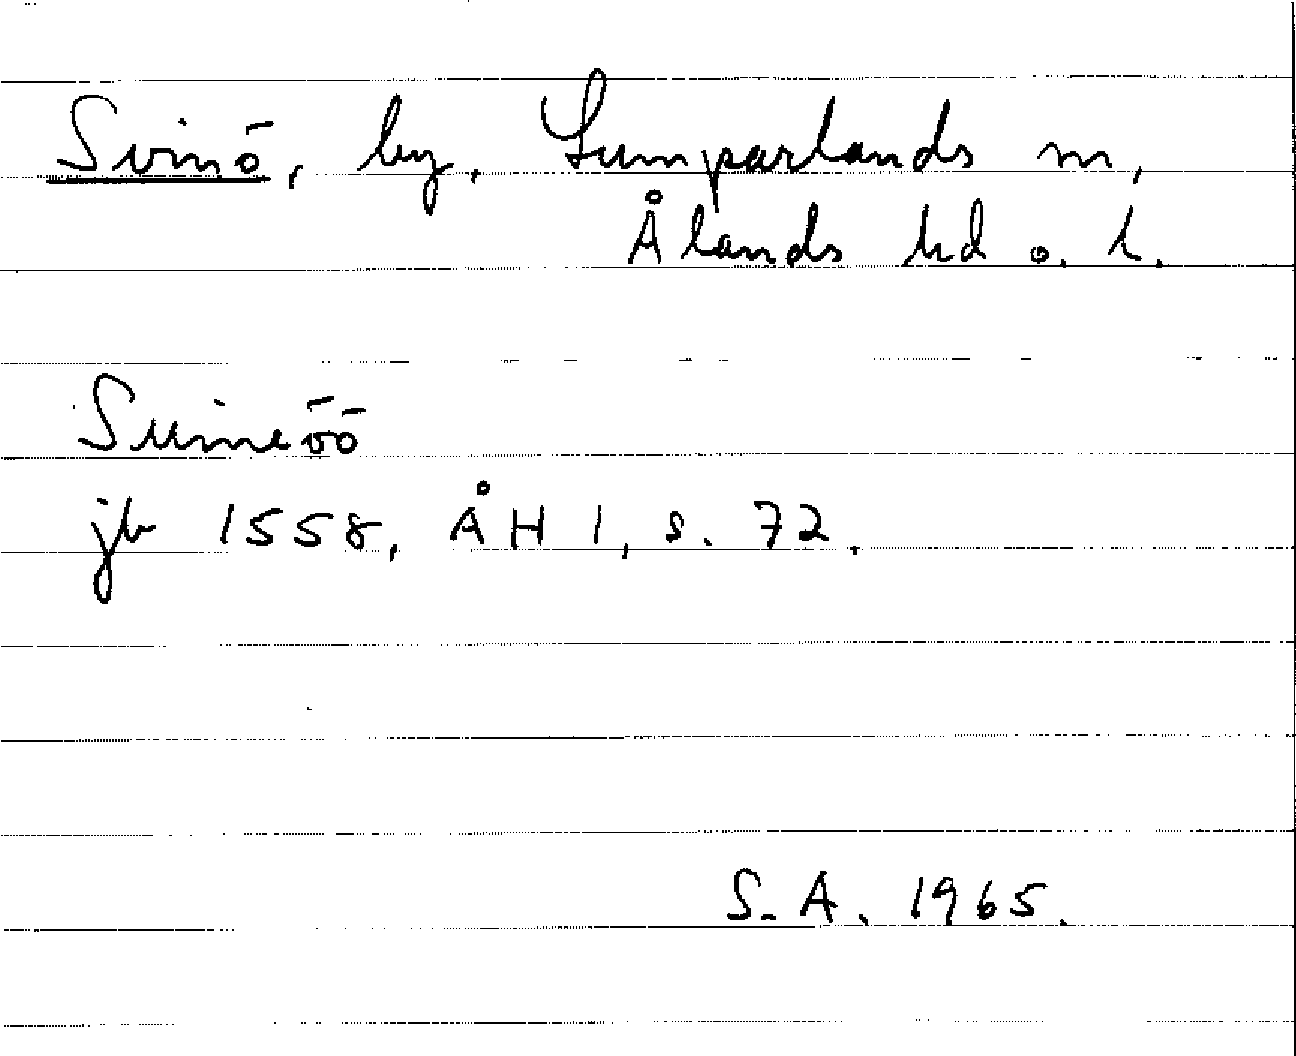 Svinö, by, Lumparlands sn,
Ålands hd o. l.
Suineöö
jb 1558, ÅH 1, s. 72.
S. A. 1965.